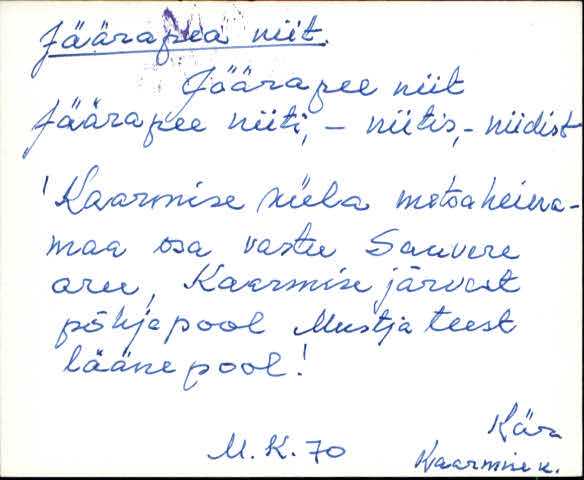 Jäärapea niit.
Jäärapee niit
Jäärapee niiti, – niitis, – niidist
'Kaarmise küla metsaheina-
maa osa vastu Sauvere
aru, Kaarmise järvest
põhjapool Mustja teest
läänepool!
Kär
M. K. 70
Kaarmise k.